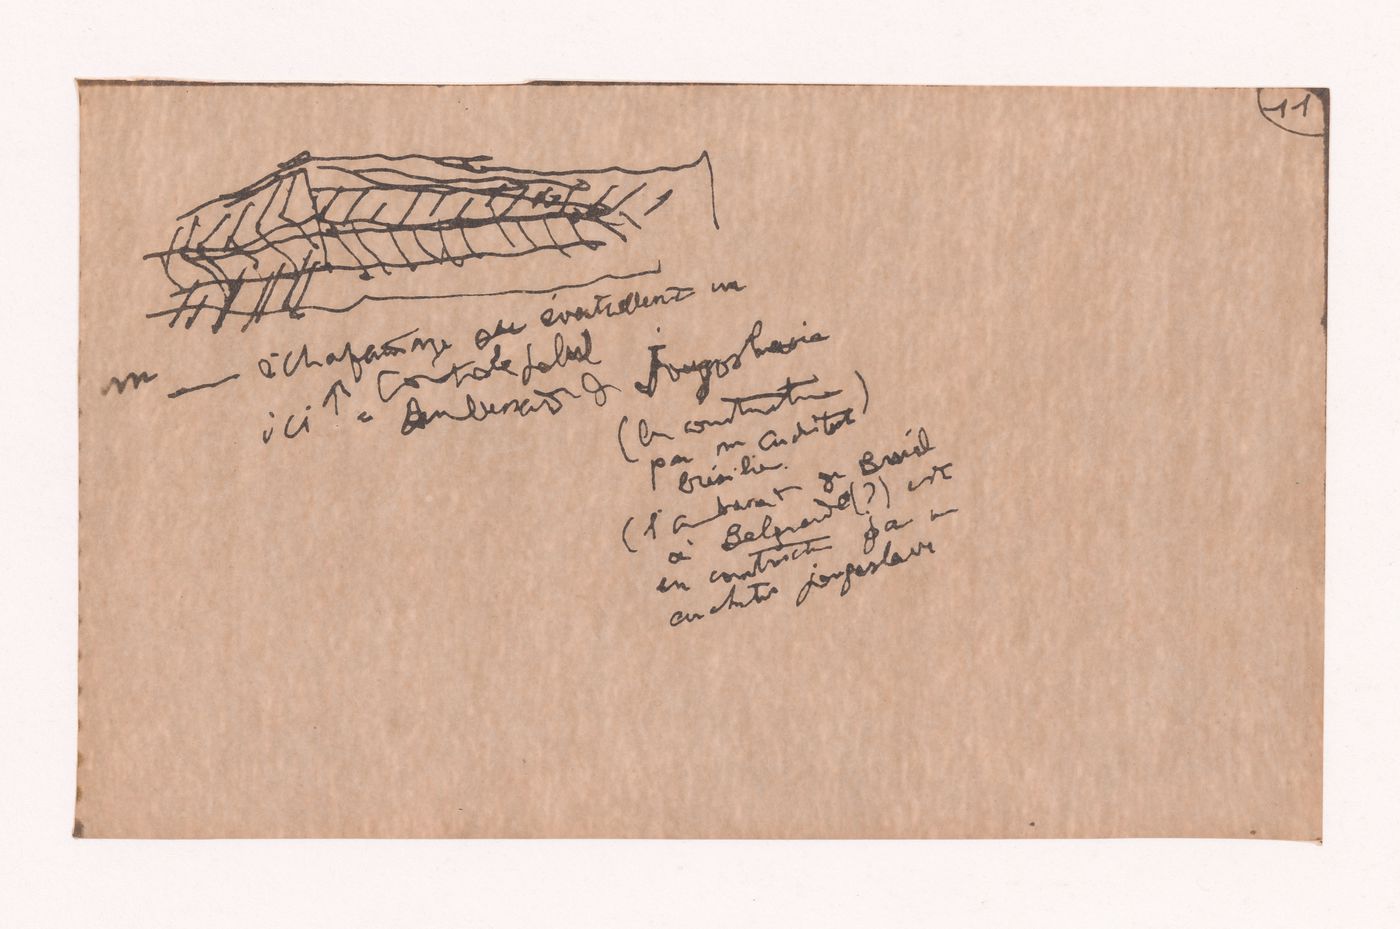 11
un — échafaudage ou éventuellement un
ici ↑ Contrôle
= Ambassade de Jougoslavie
(En construction)
par un architecte
brésilien.
(l'ambassade du Brésil
à Belgrade (?) est
en construction par un
architecte jougoslave